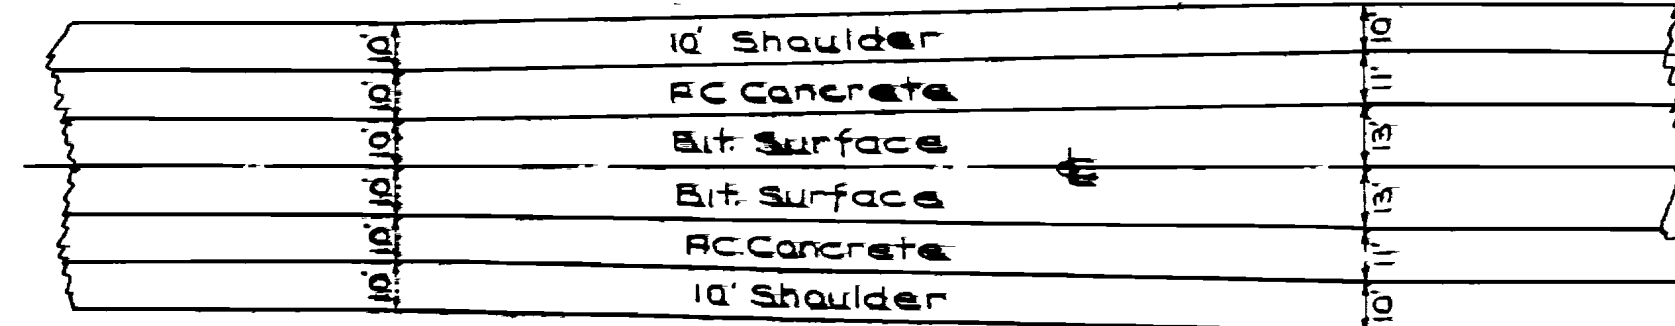 10' 10' Shoulder 10'
10' P.C. Concrete 11'
10' Bit. Surface 13'
℄
10' Bit. Surface 13'
10' P.C. Concrete 11'
10' 10' Shoulder 10'